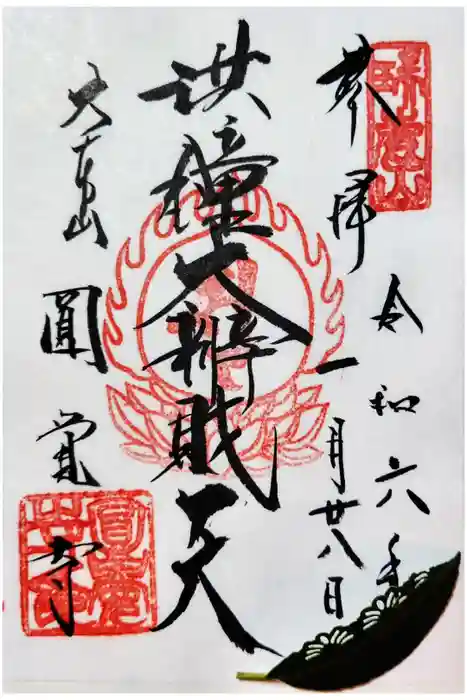 奉拝
令和六年
一月廿八日
洪鐘大辨財天
大本山
圓覚寺